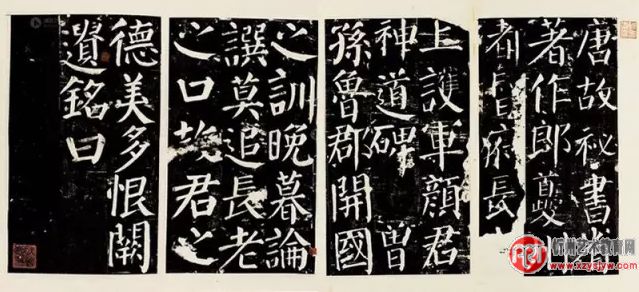 唐故祕書省
著作郎夔
都督府長
上護軍顏君
神道碑 曾
孫魯郡開國
之訓晚暮論
譔莫追長老
之口故君之
德美多恨闕
遺銘曰